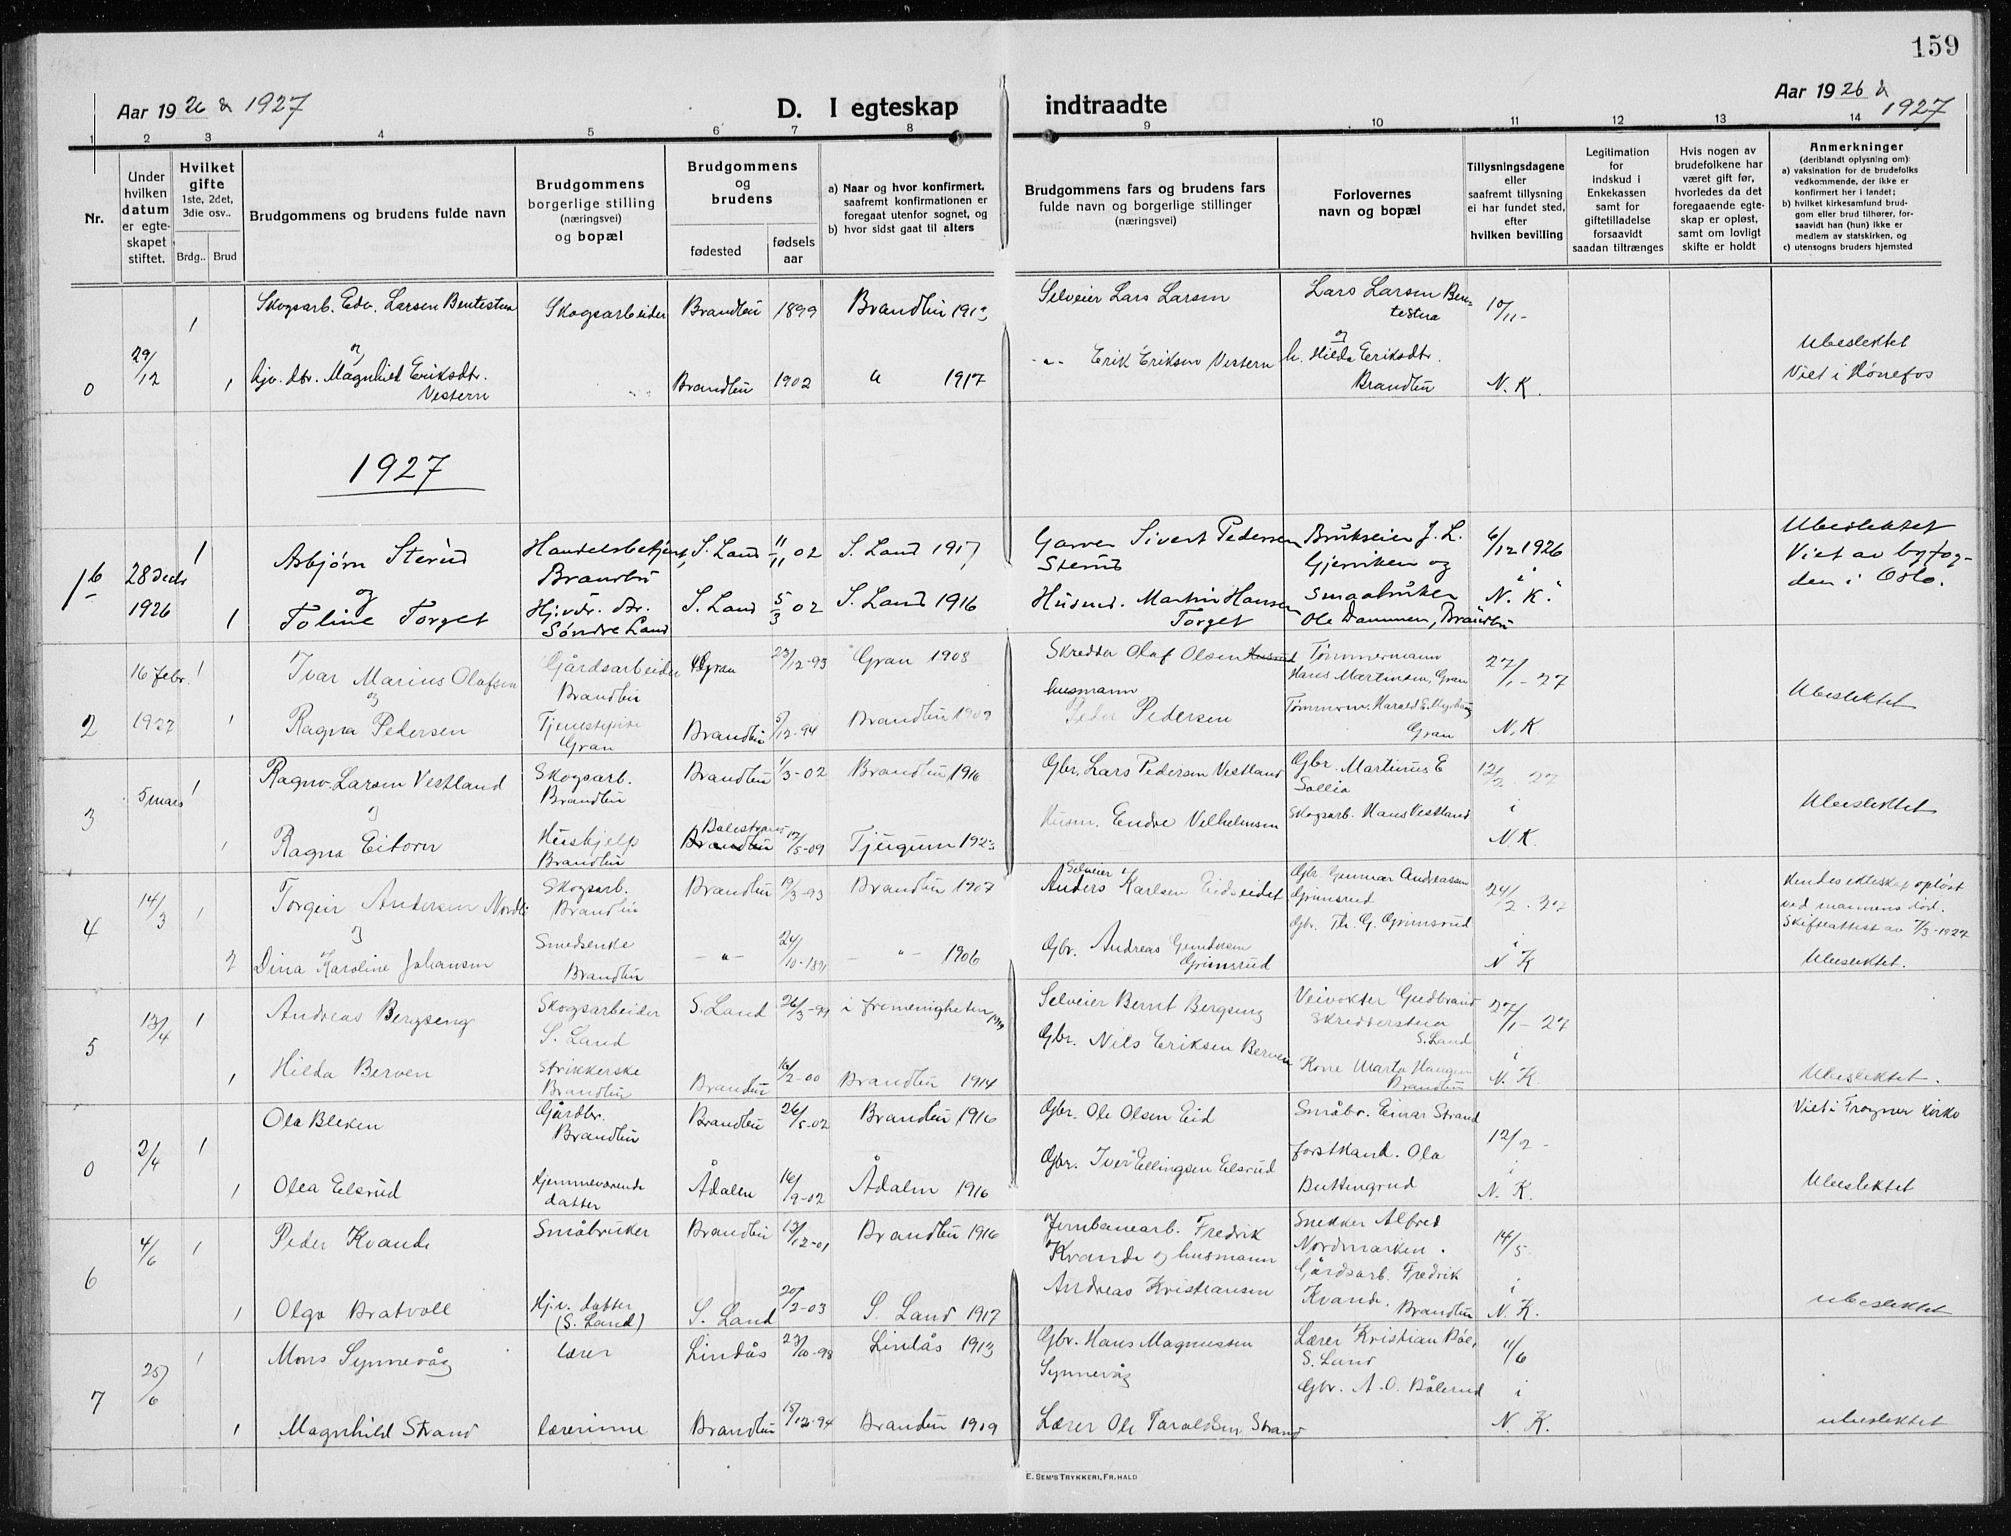 159
Aar 1926 & 1927
D. I egteskap indtraadte
Aar 1926 & 1927
1 2 3 4 5 6 7 8 9 10 11 12 13 14
Nr.
Under hvilken datum er egteskapet stiftet.
Hvilket gifte 1ste, 2det, 3die osv..
Brdg.. Brud
Brudgommens og brudens fulde navn
Brudgommens borgerlige stilling (næringsvei) og bopæl
Brudgommens og brudens
fødested
fødsels aar
a) Naar og hvor konfirmert, saafremt konfirmationen er foregaat utenfor sognet, og
b) hvor sidst gaat til alters
Brudgommens fars og brudens fars fulde navn og borgerlige stillinger (næringsvei)
Forlovernes navn og bopæl
Tillysningsdagene eller saafremt tillysning ei har fundet sted, efter hvilken bevilling
Legitimation for indskud i Enkekassen samt for giftetilladelse forsaavidt saadan tiltrænges
Hvis nogen av brudefolkene har været gift før, hvorledes da det foregaaende egteskap er opløst, samt om lovligt skifte er holdt
Anmerkninger (deriblandt oplysning om):
a) vaksination for de brudefolks vedkommende, der ikke er konfirmert her i landet;
b) hvilket kirkesamfund brudgom eller brud tilhører, forsaavidt han (hun) ikke er medlem av statskirken, og
c) utensogns bruders hjemsted
0 29/12 1 Skogsarb. Edv. Larsen Bentestua Skogsarbeider Brandbu 1899 Brandbu 1913 Selveier Lars Larsen Lars Larsen Bentestua 10/11-
og
1 hjv. dtr. Magnhild Eriksdtr. Vestern Brandbu 1902 " 1917 -"- Erik Eriksen Vestern h. Hilda Eriksdtr. Brandbu N. K. Ubeslektet Viet i Hønefos
1927
1 28 decbr 1926 1 Asbjørn Sterud Handelsbetjent, Brandbu S. Land 11/11 02 S. Land 1917 Garver Sivert Pedersen Sterud Brukseier J. L. Gjerviken og 6/12 1926 Ubeslektet Viet av byfogden i Oslo.
og
1 Toline Torget Hjvdr. dtr. Søndre Land S. Land 5/3 02 S. Land 1916 Husmd. Martin Hansen Torget Smaabruker Ole Dammen, Brandbu N. K.
2 16 febr. 1927 1 Ivar Marius Olafsen Gårdsarbeider Brandbu Gran 23/12-93 Gran 1908 Skredder Olaf Olsen Tømmermann Hans Martinsen, Gran 27/1-27
og
1 Ragna Pedersen Gran Brandbu 5/12-94 Brandbu 1909 husmann Peder Pedersen Gran N. K. Ubeslektet
3 5 mars 1 Ragnv. Larsen Vestland Skogsarb. Brandbu Brandbu 1/3-02 Brandbu 1916 Gbr. Lars Pedersen Vestland Gbr. Martinus E Sollia 12/2-27
og
1 Ragna Eitorn Hushjelp Brandbu Balestrand 12/5-09 Tjugum 1923 Husm. Endre Velhelmsen Skogsarb. Hans Vestland i N. K. Ubeslektet
4 14/3 1 Torgeir Andersen Nordli Skogsarb. Brandbu Brandbu 19/3-93 Brandbu 1907 Selveier Anders Karlsen Eidseidet Gbr. Gunnar Andreassen Grimsrud 24/2-27 Hendes ekteskap opløst ved mannens død. Skifteattest av 7/3-1927
og
2 Dina Karoline Johansen Smedsenke Brandbu -"- 24/10-1891 -"- 1906 Gbr. Andreas Grimsrud Gbr. Th. G. Grimsrud i N K Ubeslektet.
5 13/4 1 Andreas Bergseng Skogsarbeider S. Land S. Land 26/3-99 i fremenigheten 1919 Selveier Bernt Bergseng Veivokter Gudbrand Skredderstua S. Land 27/1-27
1 Hilda Berven Strikkerske Brandbu Brandbu 16/2-00 Brandbu 1914 Gbr. Nils Eriksen Berven Kone Marta Haugen Brandbu i N. K. Ubeslektet.
0 2/4 1 Ola Bleken Gårdbr. Brandbu Brandbu 26/5-02 Brandbu 1916 Gbr. Ole Olsen Eid Småbr. Einar Strand 12/2- Viet i Frogner kirke
1 Olea Elsrud Hjemmeværende datter Ådalen 16/9-02 Ådalen 1916 Gbr. Iver Ellingsen Elsrud forstkand. Ola Buttingsrud i N. K. Ubeslektet
6 4/6 1 Peder Kvande Småbruker Brandbu 13/12-01 Brandbu 1916 Jernbanearb. Fredrik Kvande og husmann Snekker Alfred Nordmarken. 14/5
1 Olga Bratvoll Hj.v. datter (S. Land) S. Land 20/2-03 S. Land 1917 Andreas Kristiansen Gårdsarb. Fredrik Kvande. Brandbu i N. K. ubeslektet
7 25/6 1 Mons Synnevåg lærer Lindås 23/10-98 Lindås 1913 Gbr. Hans Magnussen Synnevåg Lærer Kristian Bøe, S. Land 11/6
1 Magnhild Strand lærerinne Brandbu 15/12-94 Brandbu 1909 Lærer Ole Taraldsen Strand Gbr. A. O. Bålerud i N. K. ubeslektet
E. SEM'S TRYKKERI, FR.HALD